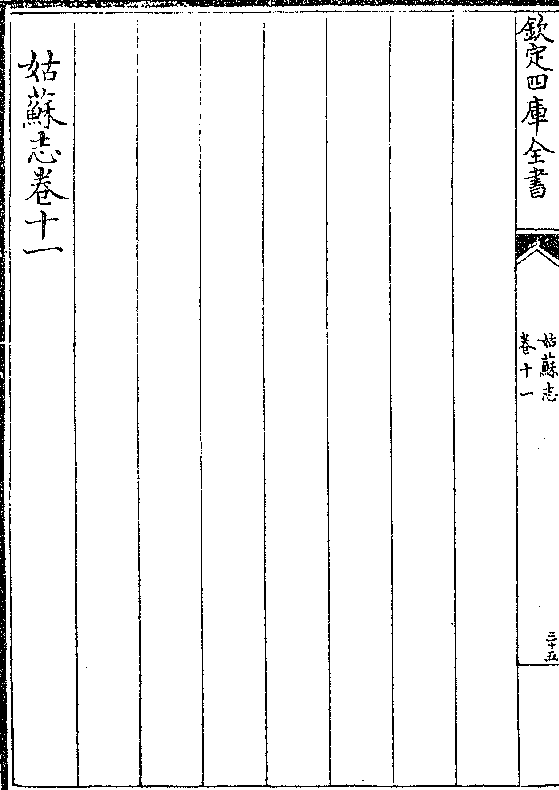 欽定四庫全書
姑蘇志
卷十一
三十五
姑蘇志卷十一